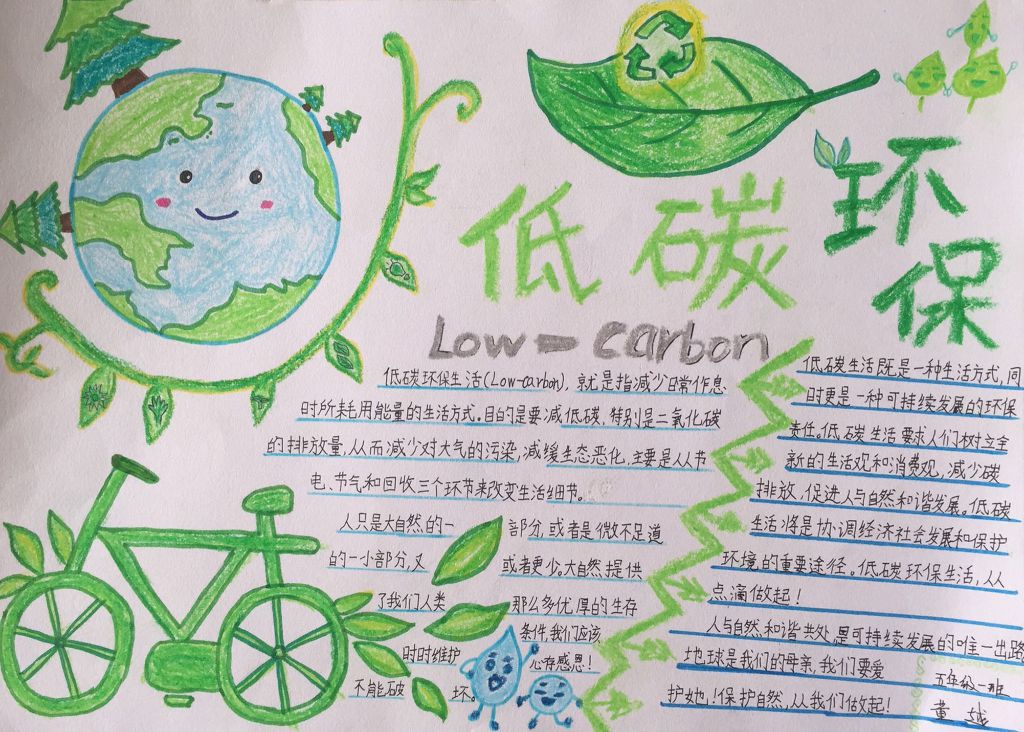 低碳
环保
Low-carbon
低碳环保生活(Low-carbon),就是指减少日常作息
时所耗用能量的生活方式。目的是要减低碳,特别是二氧化碳
的排放量,从而减少对大气的污染,减缓生态恶化,主要是从节
电、节气和回收三个环节来改变生活细节。
人只是大自然的一 部分,或者是微不足道
的一小部分,又 或者更少。大自然提供
了我们人类 那么多优厚的生存
条件,我们应该
时时维护 心存感恩!
不能破 坏。
低碳生活既是一种生活方式,同
时更是一种可持续发展的环保
责任。低碳生活要求人们树立全
新的生活观和消费观,减少碳
排放,促进人与自然和谐发展。低碳
生活将是协调经济社会发展和保护
环境的重要途径。低碳环保生活,从
点滴做起!
人与自然,和谐共处是可持续发展的唯一出路
地球是我们的母亲,我们要爱
护她!保护自然,从我们做起!
五年级一班
黄越